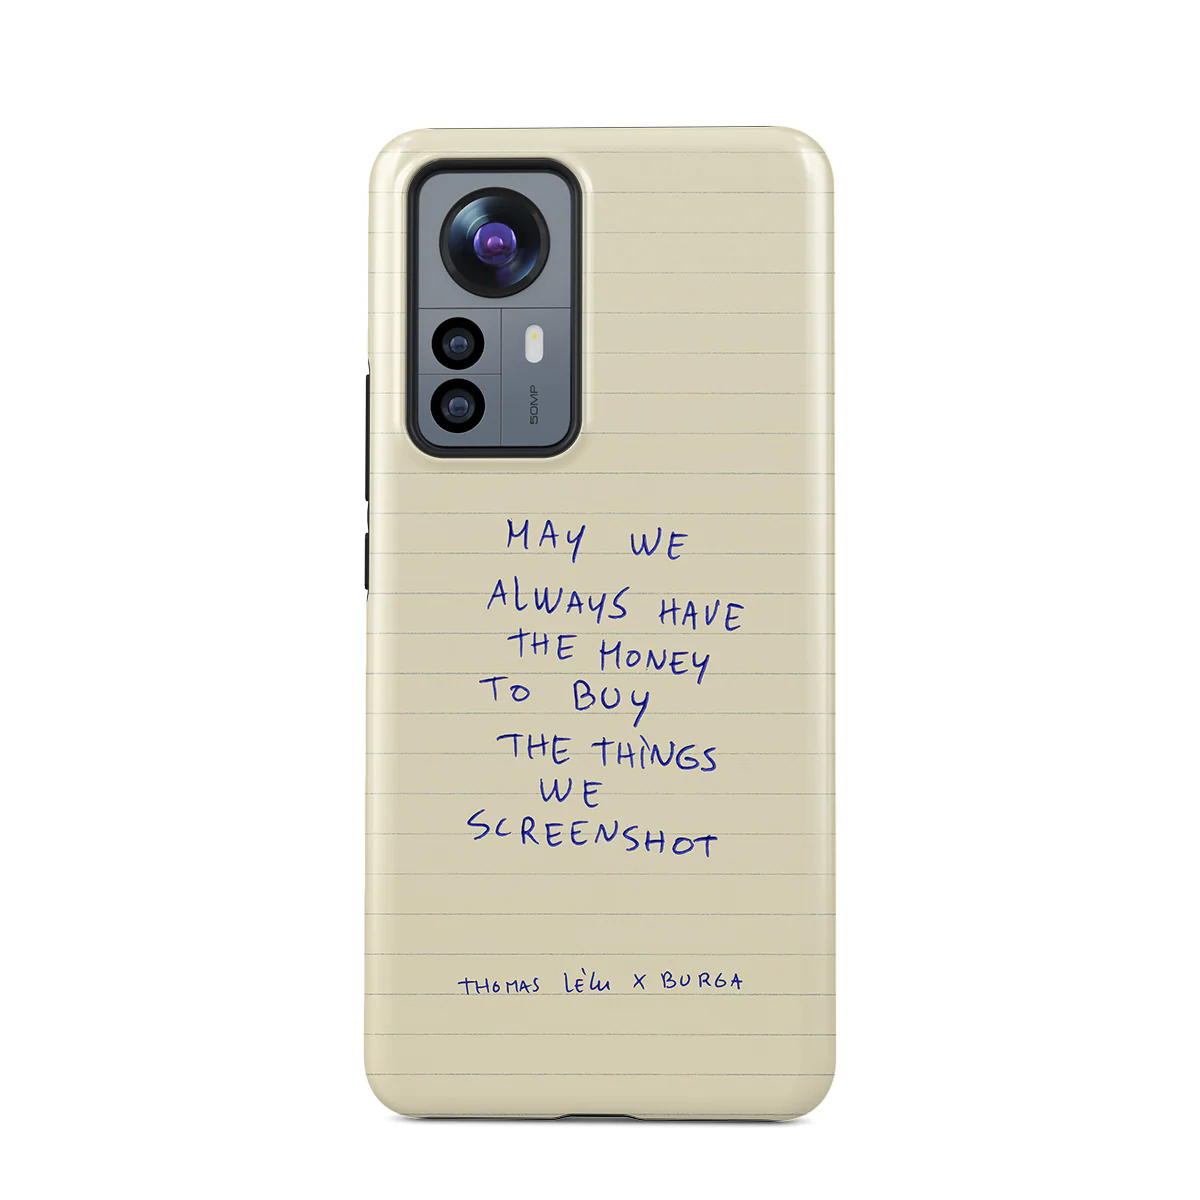 50MP
MAY WE
ALWAYS HAVE
THE MONEY
TO BUY
THE THINGS
WE
SCREENSHOT
THOMAS LÈLU X BURGA